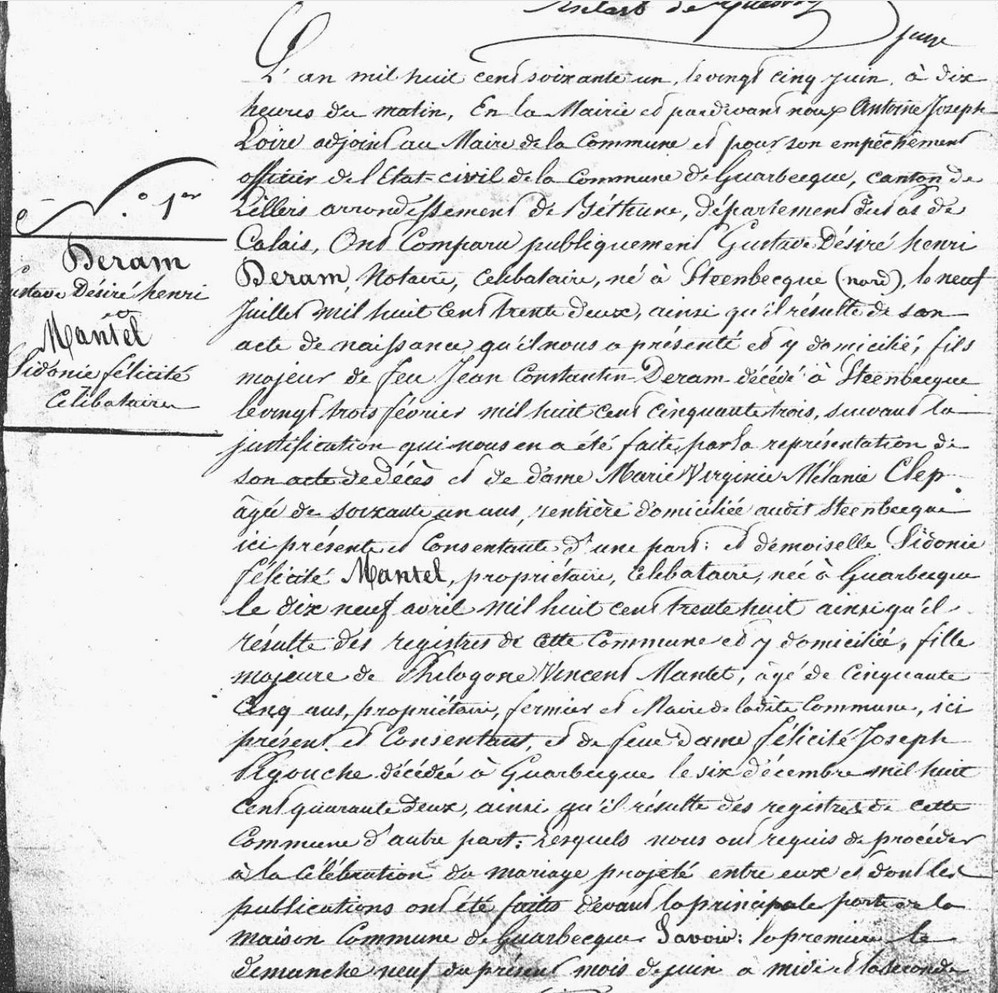 juge
L'an mil huit cent soixante un, le vingt cinq juin, à dix
heures du matin, En la Mairie et pardevant nous Antoine Joseph
Loire adjoint au Maire de la Commune et pour son empêchement
officier de l'Etat-civil de la commune de Guarbecque, canton de
Lillers arrondissement de Béthune, département du Pas de
Calais, Ont Comparu publiquement Gustave Désiré henri
Deram, Notaire, Celibataire, né à Steenbecque (nord), le neuf
Juillet mil huit cent trente deux, ainsi qu'il résulte de son
acte de naissance qu'il nous a présenté et y domicilié, fils
majeur de feu Jean Constantin Deram décédé à Steenbecque
le vingt trois février mil huit cent cinquante trois, suivant la
justification qui nous en a été faite par la représentation de
son acte de décès et de dame Marie Virginie Mélanie Clep
âgée de soixante un ans, rentière domiciliée audit Steenbecque
ici présente et Consentante d'une part: et demoiselle Sidonie
félicité Mantel, propriétaire, Celibataire, née à Guarbecque
le dix neuf avril mil huit cent trente huit ainsi qu'il
résulte des registres de cette Commune et y domiciliée, fille
majeure de Philogone Vincent Mantel, âgé de Cinquante
Cinq ans, propriétaire, fermier et Maire de ladite Commune, ici
présent et Consentant, et de feue Dame félicité Joseph
décédée à Guarbecque le six décembre mil huit
cent quarante deux, ainsi qu'il résulte des registres de cette
Commune d'autre part: Lesquels nous ont requis de procéder
à la Célébration du mariage projeté entre eux et dont les
publications ont été faites devant la principale porte de la
maison Commune de Guarbecque Savoir: la premiere le
dimanche neuf du présent mois de juin a midi et la seconde
N.o 1er
Deram
Gustave Désiré henri
et
Mantel
Sidonie félicité
Celibataires